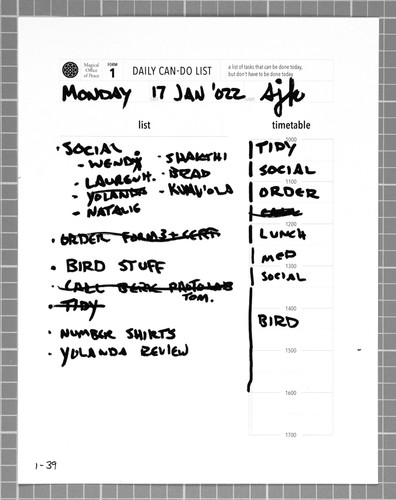 Magical
Office
of Peace
FORM
1
DAILY CAN-DO LIST
a list of tasks that can be done today,
but don't have to be done today
MONDAY 17 JAN '022 sjk
list
timetable
· SOCIAL
- WENDY
- LAUREN H.
- YOLANDA
- NATALIE
- SHAKTHI
- BRAD
- KUAI'OLA
· ORDER FORM 3 + CERF.
· BIRD STUFF
· CALL BERK PHOTO LAB
TOM.
· TIDY
· NUMBER SHIRTS
· YOLANDA REVIEW
1000
TIDY
SOCIAL
1100
ORDER
CALL
1200
LUNCH
MED
1300
SOCIAL
1400
BIRD
1500
1600
1700
1-39